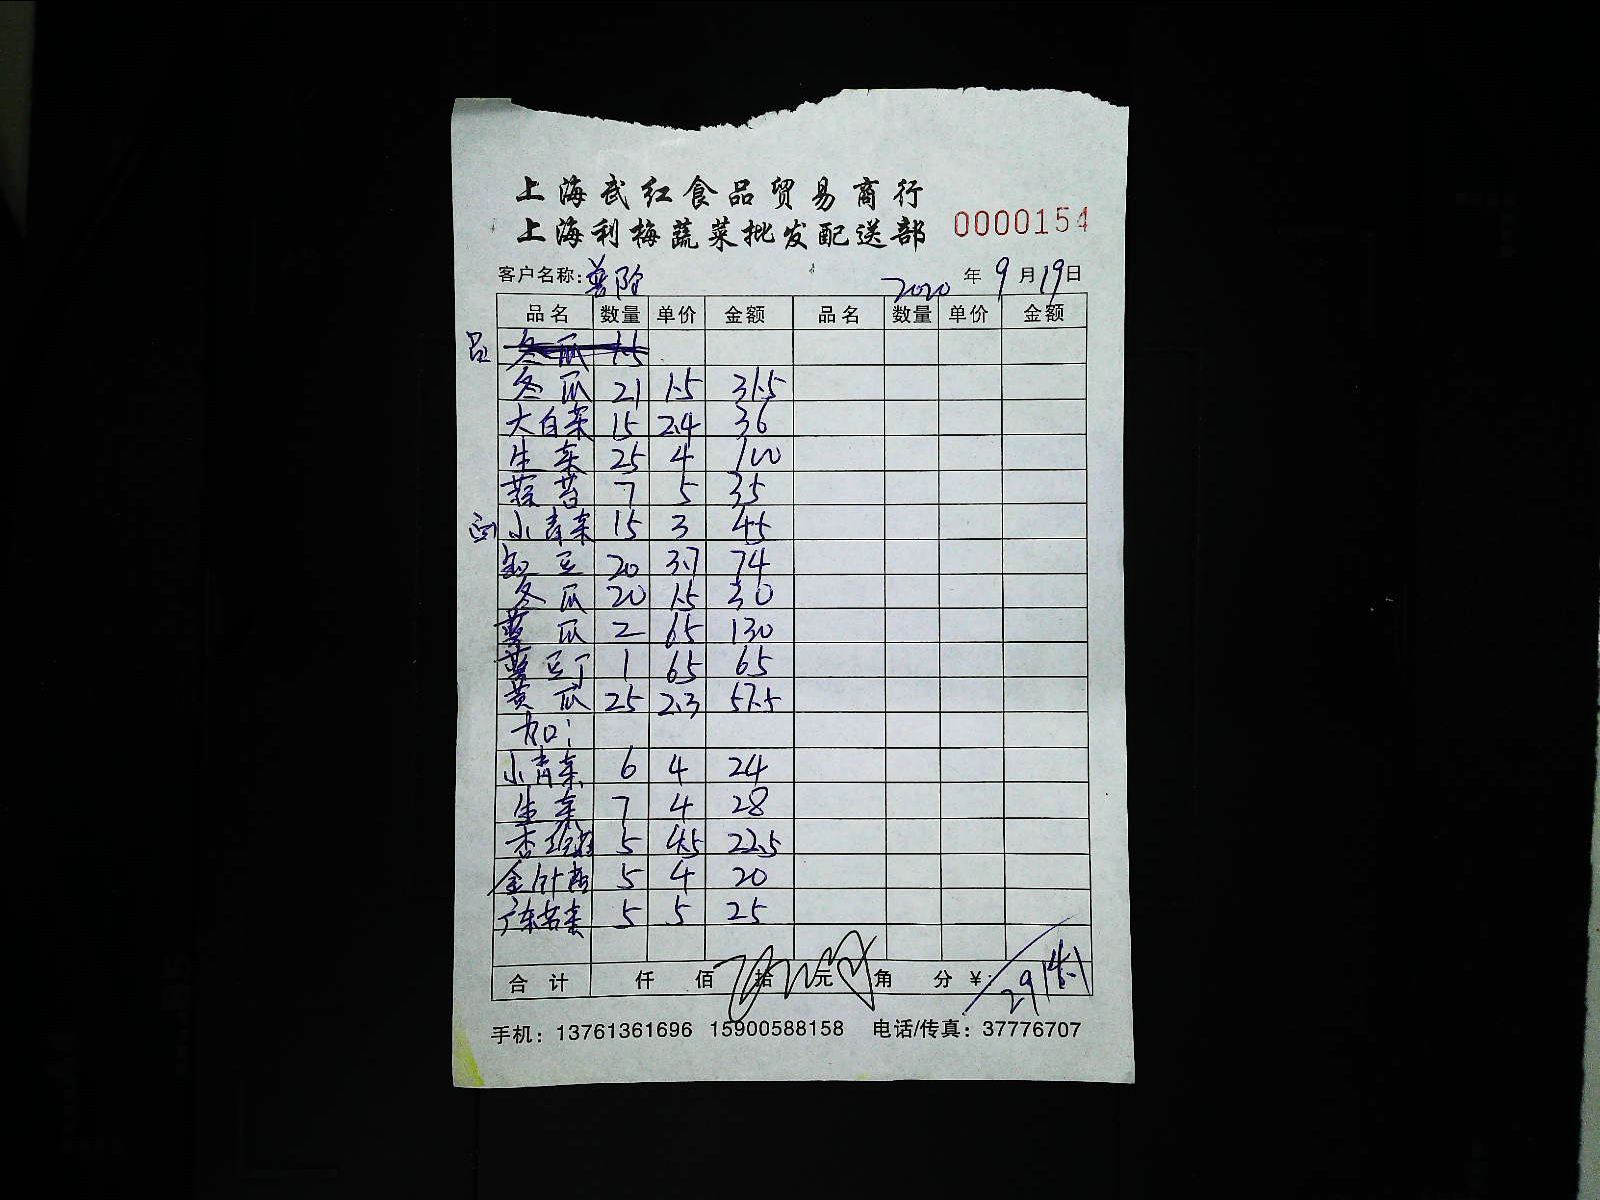 上海武红食品贸易商行
上海利梅蔬菜批发配送部 0000154
客户名称: 2020 年 9 月 19 日
品名 数量 单价 金额 品名 数量 单价 金额
冬瓜 15
冬瓜 21 1.5 31.5
大白菜 15 2.4 36
生菜 25 4 100
7 5 35
小青菜 15 3 45
豆 20 3.7 74
冬瓜 20 1.5 30
瓜 2 65 130
豆丁 1 65 65
黄瓜 25 2.3 57.5
加:
小青菜 6 4 24
生菜 7 4 28
杏 5 4.5 22.5
金针菇 5 4 20
广东 5 5 25
合计 仟 佰 拾 元 角 分 ¥:
手机: 13761361696 15900588158 电话/传真: 37776707